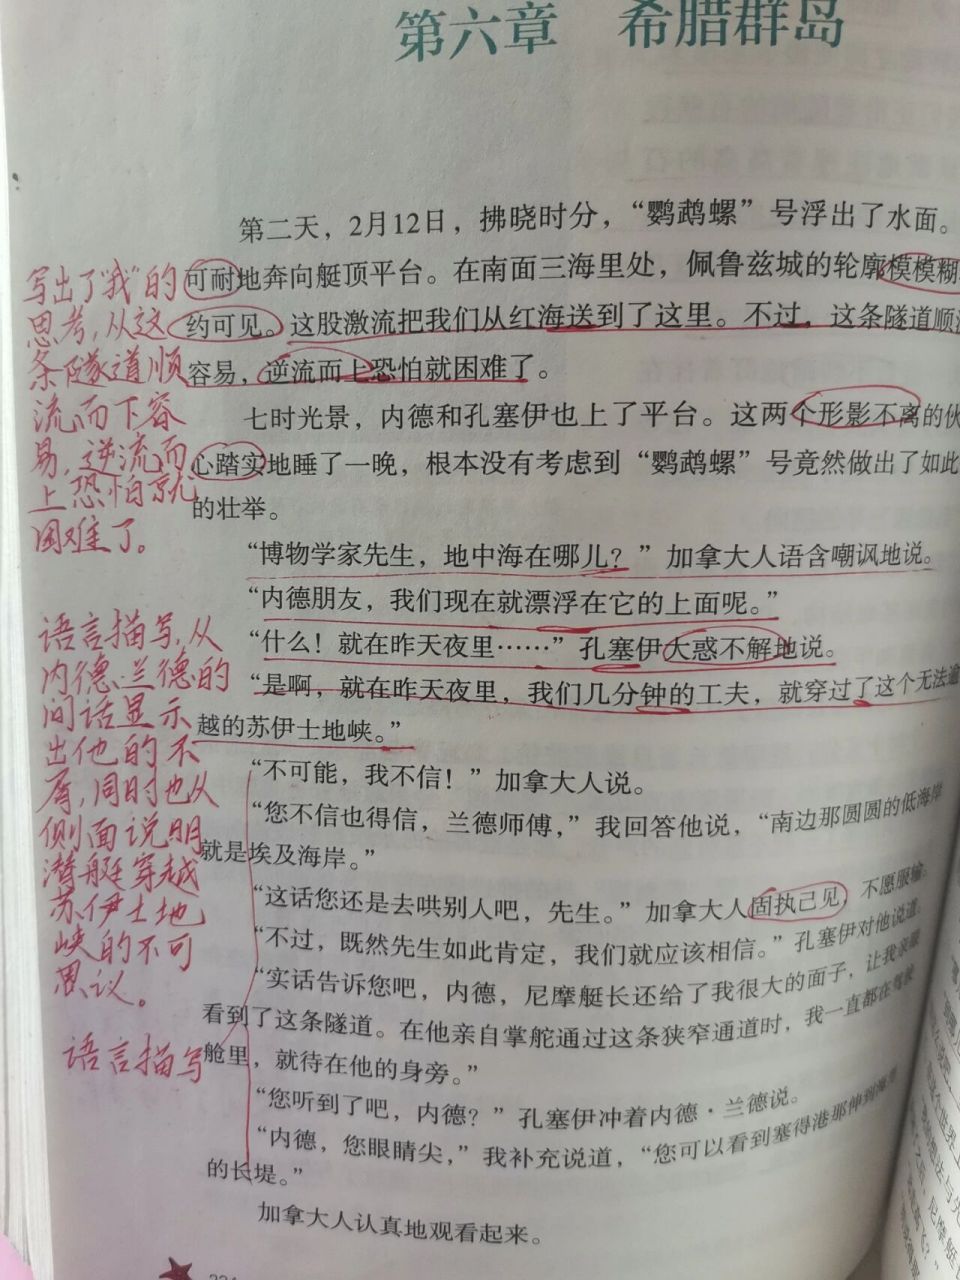 第六章 希腊群岛
第二天，2月12日，拂晓时分，“鹦鹉螺”号浮出了水面。
可耐地奔向艇顶平台。在南面三海里处，佩鲁兹城的轮廓模模糊
约可见。这股激流把我们从红海送到了这里。不过，这条隧道顺
容易，逆流而上恐怕就困难了。
七时光景，内德和孔塞伊也上了平台。这两个形影不离的伙
心踏实地睡了一晚，根本没有考虑到“鹦鹉螺”号竟然做出了如此
的壮举。
“博物学家先生，地中海在哪儿？”加拿大人语含嘲讽地说。
“内德朋友，我们现在就漂浮在它的上面呢。”
“什么！就在昨天夜里……”孔塞伊大惑不解地说。
“是啊，就在昨天夜里，我们几分钟的工夫，就穿过了这个无法逾
越的苏伊士地峡。”
“不可能，我不信！”加拿大人说。
“您不信也得信，兰德师傅，”我回答他说，“南边那圆圆的低海岸
就是埃及海岸。”
“这话您还是去哄别人吧，先生。”加拿大人固执己见，不愿服输。
“不过，既然先生如此肯定，我们就应该相信。”孔塞伊对他说道。
“实话告诉您吧，内德，尼摩艇长还给了我很大的面子，让我亲眼
看到了这条隧道。在他亲自掌舵通过这条狭窄通道时，我一直都在驾驶
舱里，就待在他的身旁。”
“您听到了吧，内德？”孔塞伊冲着内德·兰德说。
“内德，您眼睛尖，”我补充说道，“您可以看到塞得港那伸到海里
的长堤。”
加拿大人认真地观看起来。
写出了“我”的
思考，从这
条隧道顺
流而下容
易，逆流而
上恐怕就
困难了。
语言描写，从
内德·兰德的
问话显示
出他的不
屑，同时也从
侧面说明
潜艇穿越
苏伊士地
峡的不可
思议。
语言描写